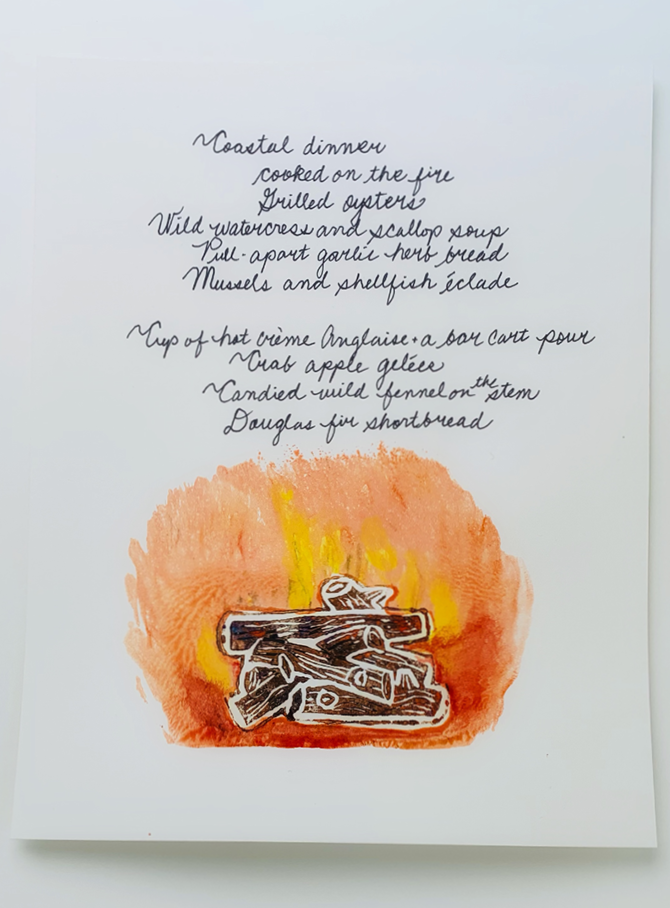 Coastal dinner
cooked on the fire
Grilled oysters
Wild watercress and scallop soup
Pull-apart garlic herb bread
Mussels and shellfish éclade
Cup of hot crème Anglaise + a bar cart pour
Crab apple gelées
Candied wild fennel on the stem
Douglas fir shortbread